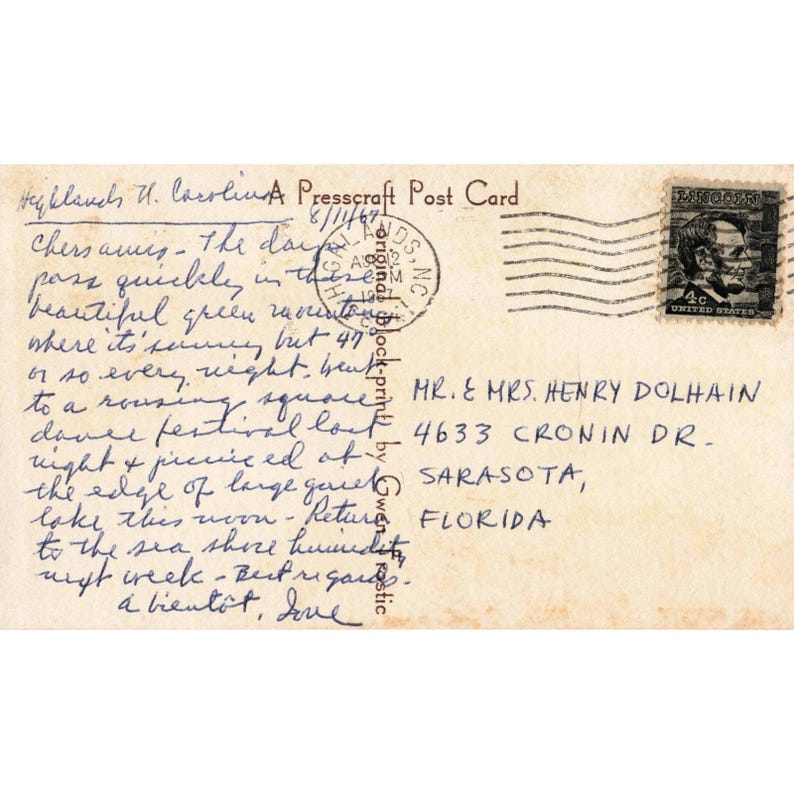 A Presscraft Post Card
Highlands N. Carolina
8/11/67
Chers amis - The days
pass quickly in these
beautiful green mountains
where it's sunny but 47°
or so every night. Went
to a rousing square
dance festival last
night & picniced at
the edge of large quiet
lake this noon - Return
to the sea shore humidity
next week - Best regards -
a bientôt,
original Block-print by Gwen Frostic
HIGHLANDS, N.C.
AUG 12
LINCOLN
4c
UNITED STATES
MR. & MRS. HENRY DOLHAIN
4633 CRONIN DR.
SARASOTA,
FLORIDA